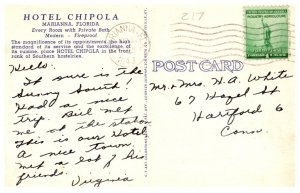 HOTEL CHIPOLA
MARIANNA, FLORIDA
Every Room with Private Bath
Modern - Fireproof
The magnificence of its appointment, the high
standard of its service and the excellence of
its cuisine, place HOTEL CHIPOLA in the front
rank of Southern hostelries.
Hello:
It sure is the
Sunny South!
Had a nice
trip. Bill met
me at the station
This is our Hotel
A nice town.
met a lot of his
friends.
Virginia
217
POST CARD
Mr. & Mrs. H. A. White
67 Hazel St
Hartford 6
Conn.